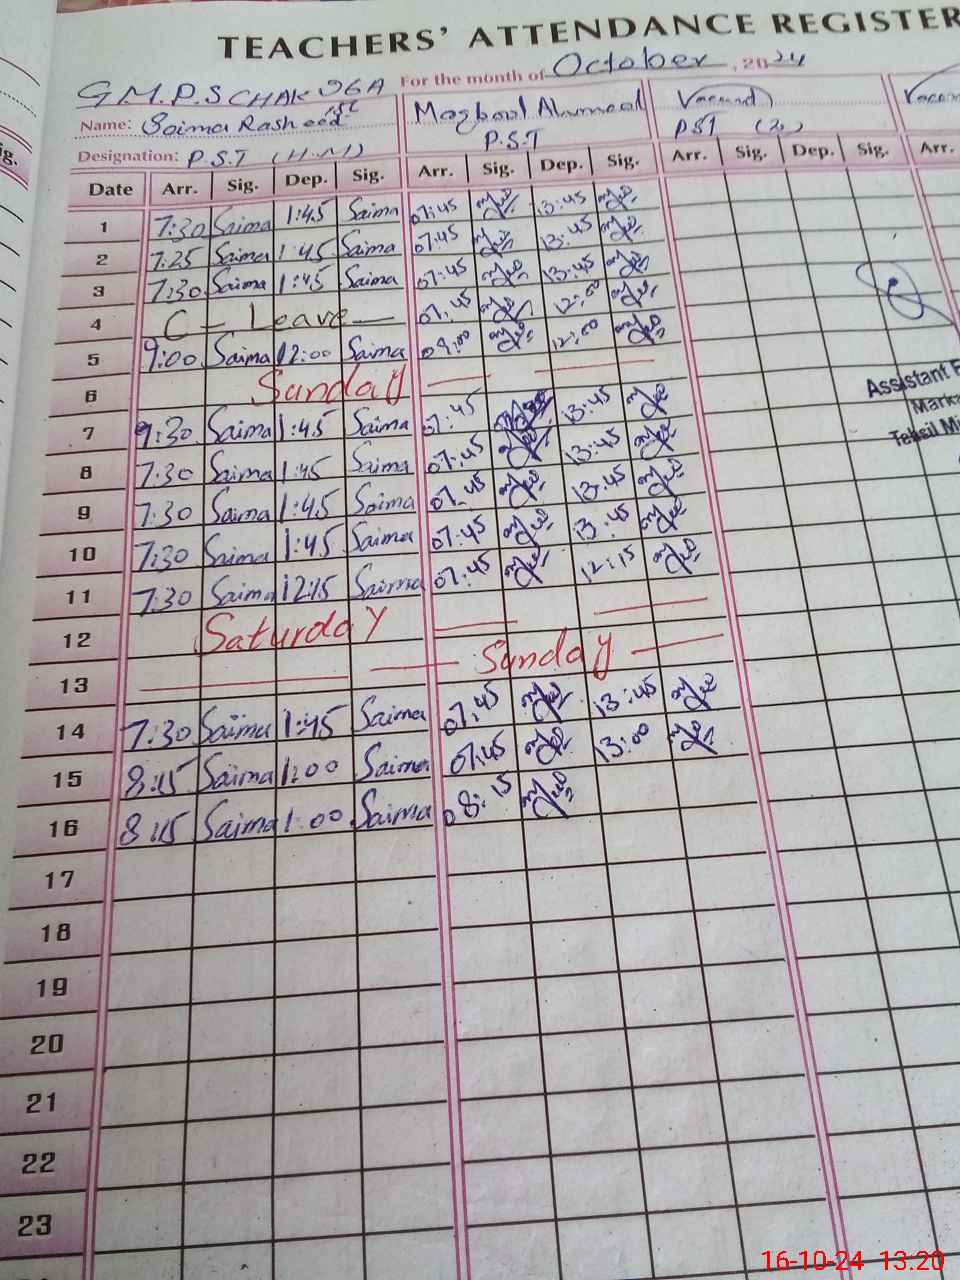 TEACHERS' ATTENDANCE REGISTER
G.M.P.S CHAK 96A For the month of October, 2024
Name: Saima Rasheed Maqbool Ahmead Vacand
Designation: P.S.T (H.M) P.S.T PST (2)
Date Arr. Sig. Dep. Sig. Arr. Sig. Dep. Sig. Arr. Sig. Dep. Sig. Arr.
1 7:30 Saima 1:45 Saima 07:45 13:45
2 7:25 Saima 1:45 Saima 07:45 13:45
3 7:30 Saima 1:45 Saima 07:45 13:45
4 C - Leave - 07:45 12:00
5 9:00 Saima 12:00 Saima 09:00 12:00
6 Sunday
7 7:30 Saima 1:45 Saima 07:45 13:45
8 7:30 Saima 1:45 Saima 07:45 13:45
9 7:30 Saima 1:45 Saima 07:45 13:45
10 7:30 Saima 1:45 Saima 07:45 13:45
11 7:30 Saima 12:15 Saima 07:45 12:15
12 Saturday
13 Sunday
14 7:30 Saima 1:45 Saima 07:45 13:45
15 8:15 Saima 1:00 Saima 07:45 13:00
16 8:15 Saima 1:00 Saima 08:15
17
18
19
20
21
22
23
Assistant
Marka
Tehsil
16-10-24 13:20